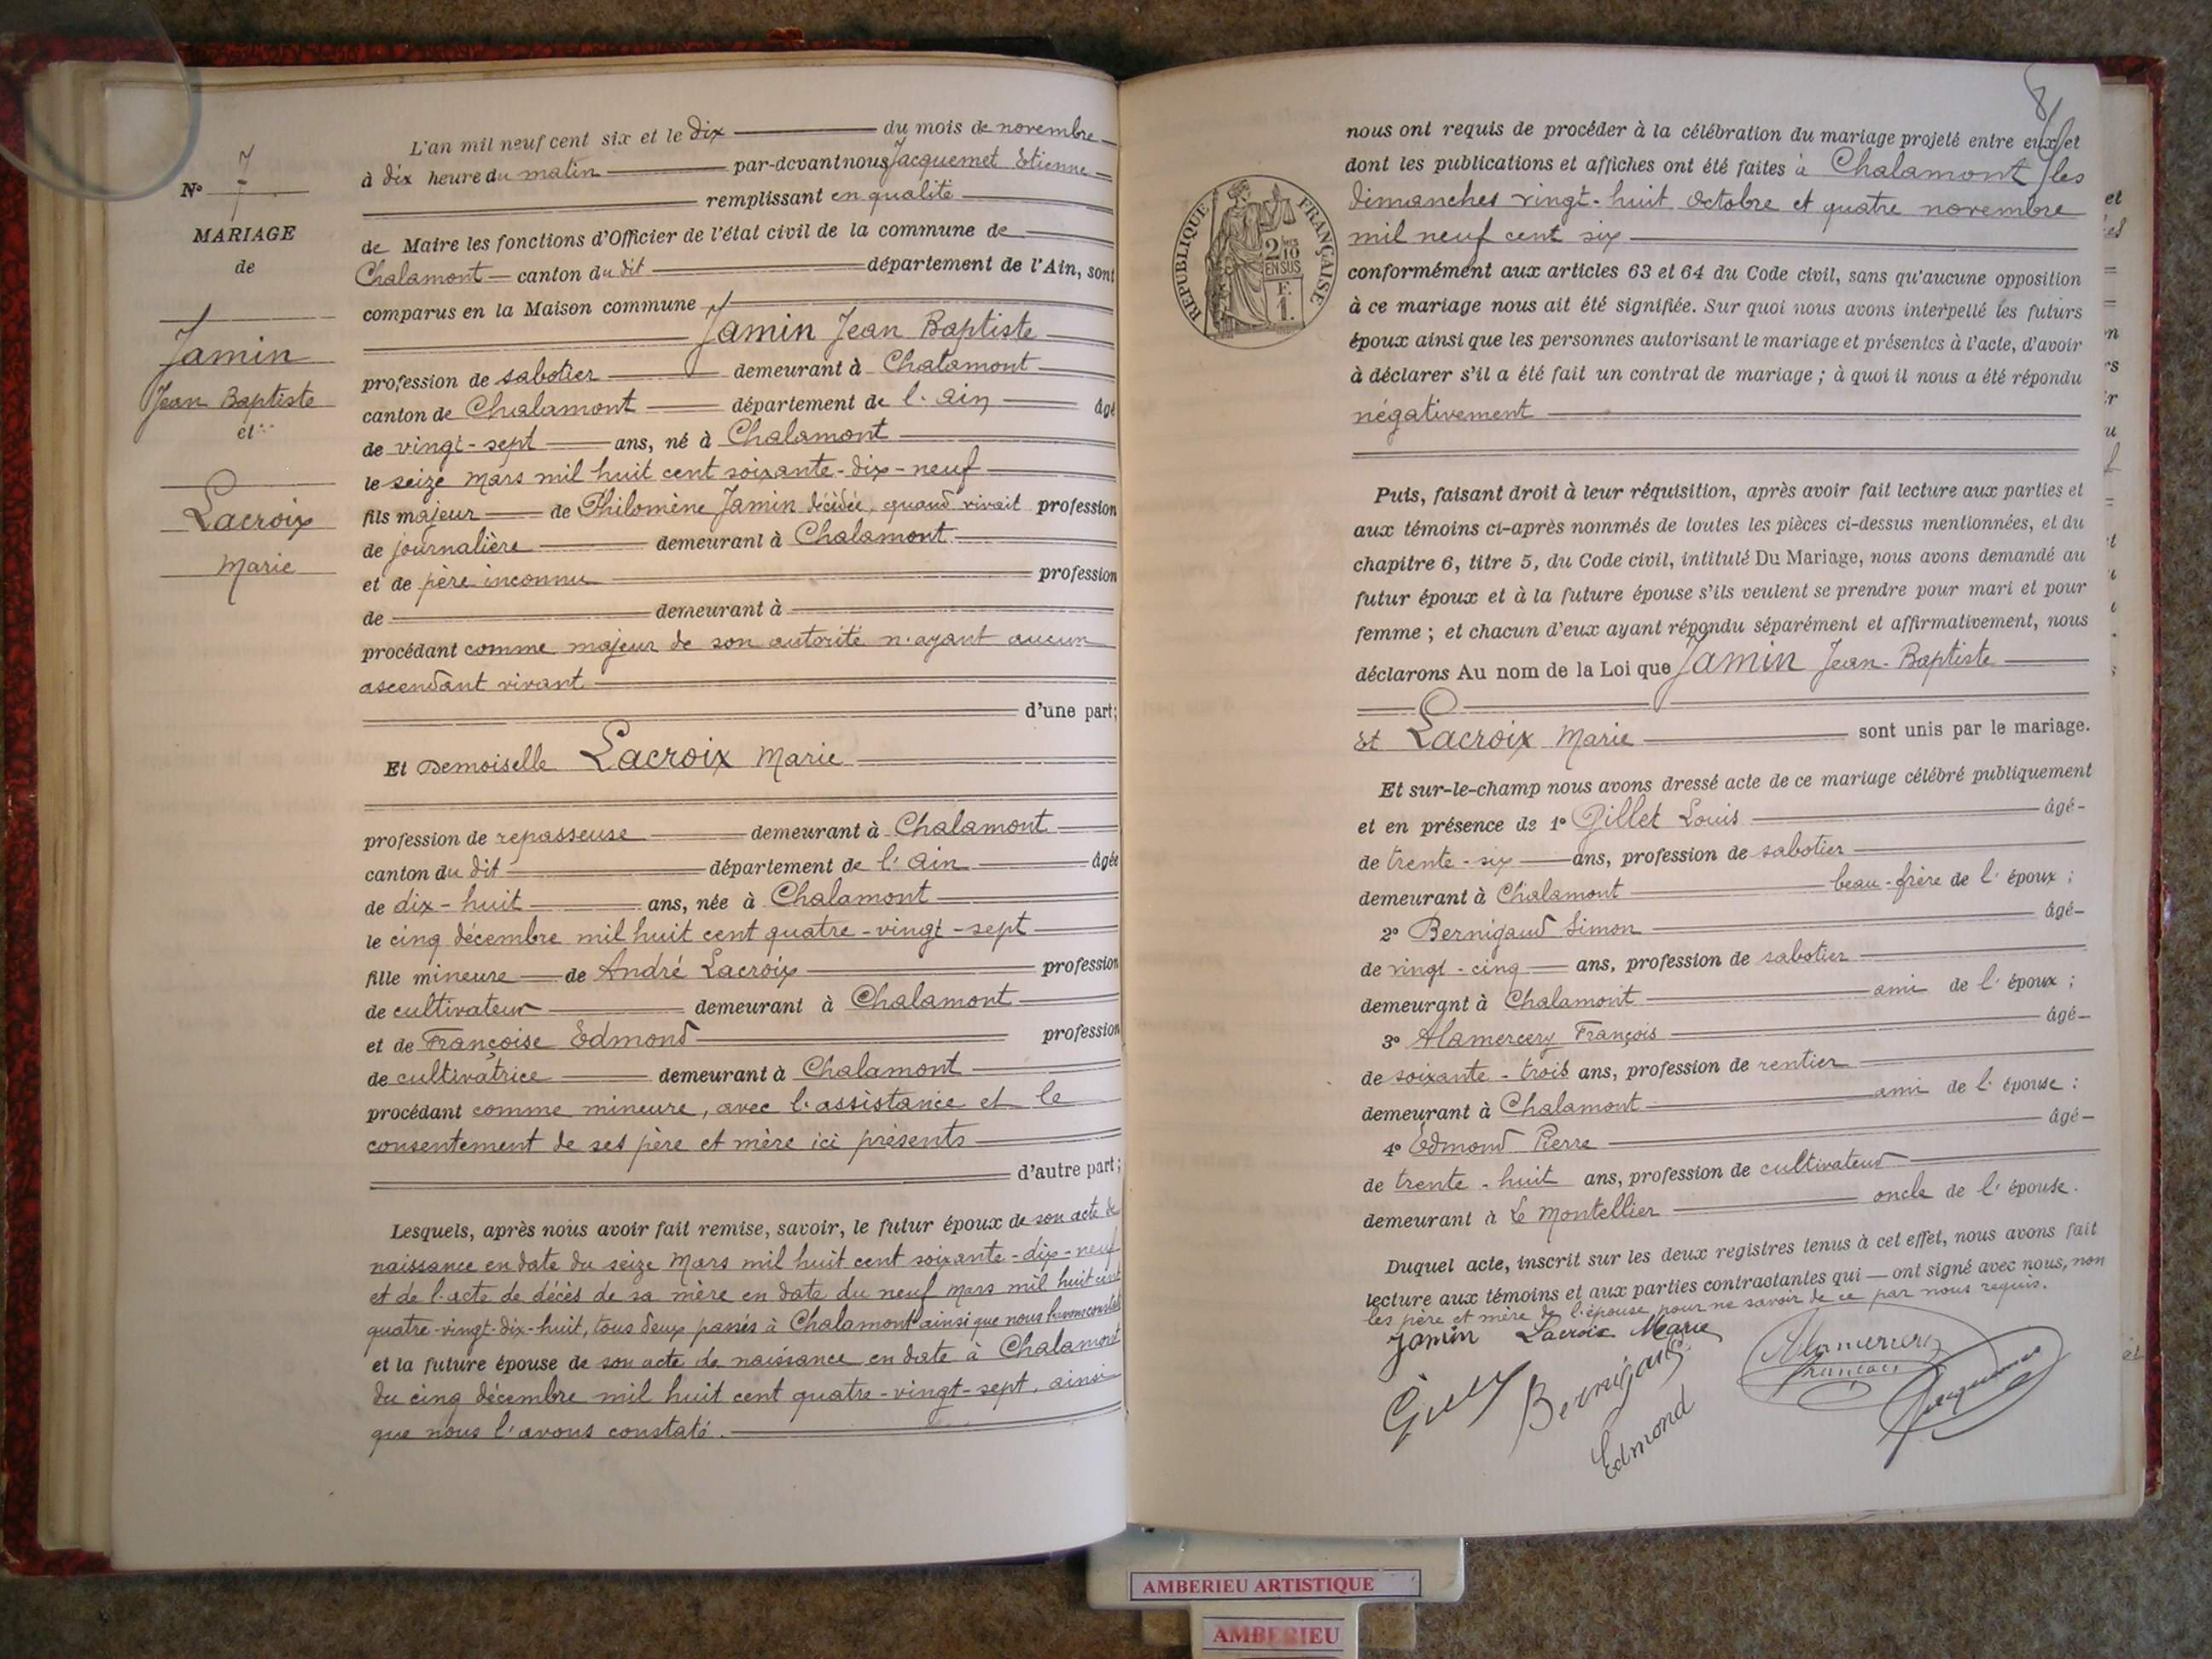 N° 7
MARIAGE
de
Jamin
Jean Baptiste
et
Lacroix
Marie
L'an mil neuf cent six et le dix du mois de novembre
à dix heure du matin par-devant nous Jacquemet Etienne
remplissant en qualité
de Maire les fonctions d'Officier de l'état civil de la commune de
Chalamont canton du dit département de l'Ain, sont
comparus en la Maison commune
Jamin Jean Baptiste
profession de sabotier demeurant à Chalamont
canton de Chalamont département de l'Ain âgé
de vingt-sept ans, né à Chalamont
le seize mars mil huit cent soixante-dix-neuf
fils majeur de Philomène Jamin décédée, quand vivait profession
de journalière demeurant à Chalamont
et de père inconnu profession
de demeurant à
procédant comme majeur de son autorité n'ayant aucun
ascendant vivant
d'une part;
Et Demoiselle Lacroix Marie
profession de repasseuse demeurant à Chalamont
canton du dit département de l'Ain âgée
de dix-huit ans, née à Chalamont
le cinq décembre mil huit cent quatre-vingt-sept
fille mineure de André Lacroix profession
de cultivateur demeurant à Chalamont
et de Françoise Edmond profession
de cultivatrice demeurant à Chalamont
procédant comme mineure, avec l'assistance et le
consentement de ses père et mère ici présents
d'autre part;
Lesquels, après nous avoir fait remise, savoir, le futur époux de son acte de
naissance en date du seize Mars mil huit cent soixante-dix-neuf
et de l'acte de décès de sa mère en date du neuf mars mil huit cent
quatre-vingt-dix-huit, tous deux passés à Chalamont ainsi que nous l'avons constaté
et la future épouse de son acte de naissance en date à Chalamont
du cinq décembre mil huit cent quatre-vingt-sept, ainsi
que nous l'avons constaté.
8
RÉPUBLIQUE FRANÇAISE
2/10
EN SUS
F.
1.
nous ont requis de procéder à la célébration du mariage projeté entre eux et
dont les publications et affiches ont été faites à Chalamont les
dimanches vingt-huit octobre et quatre novembre
mil neuf cent six
conformément aux articles 63 et 64 du Code civil, sans qu'aucune opposition
à ce mariage nous ait été signifiée. Sur quoi nous avons interpellé les futurs
époux ainsi que les personnes autorisant le mariage et présentes à l'acte, d'avoir
à déclarer s'il a été fait un contrat de mariage ; à quoi il nous a été répondu
négativement
Puis, faisant droit à leur réquisition, après avoir fait lecture aux parties et
aux témoins ci-après nommés de toutes les pièces ci-dessus mentionnées, et du
chapitre 6, titre 5, du Code civil, intitulé Du Mariage, nous avons demandé au
futur époux et à la future épouse s'ils veulent se prendre pour mari et pour
femme ; et chacun d'eux ayant répondu séparément et affirmativement, nous
déclarons Au nom de la Loi que Jamin Jean-Baptiste
et Lacroix Marie sont unis par le mariage.
Et sur-le-champ nous avons dressé acte de ce mariage célébré publiquement
et en présence de 1° Gillet Louis âgé
de trente-six ans, profession de sabotier
demeurant à Chalamont beau-frère de l'époux ;
2° Bernigaud Simon âgé
de vingt-cinq ans, profession de sabotier
demeurant à Chalamont ami de l'époux ;
3° Alamercery François âgé
de soixante-trois ans, profession de rentier
demeurant à Chalamont ami de l'épouse ;
4° Edmond Pierre âgé
de trente-huit ans, profession de cultivateur
demeurant à Le Montellier oncle de l'épouse.
Duquel acte, inscrit sur les deux registres tenus à cet effet, nous avons fait
lecture aux témoins et aux parties contractantes qui ont signé avec nous, non
les père et mère de l'épouse pour ne savoir de ce par nous requis.
Jamin Lacroix Marie
Alamercery
François
Bernigaud
Edmond
Jacquemet
AMBERIEU ARTISTIQUE
AMBERIEU